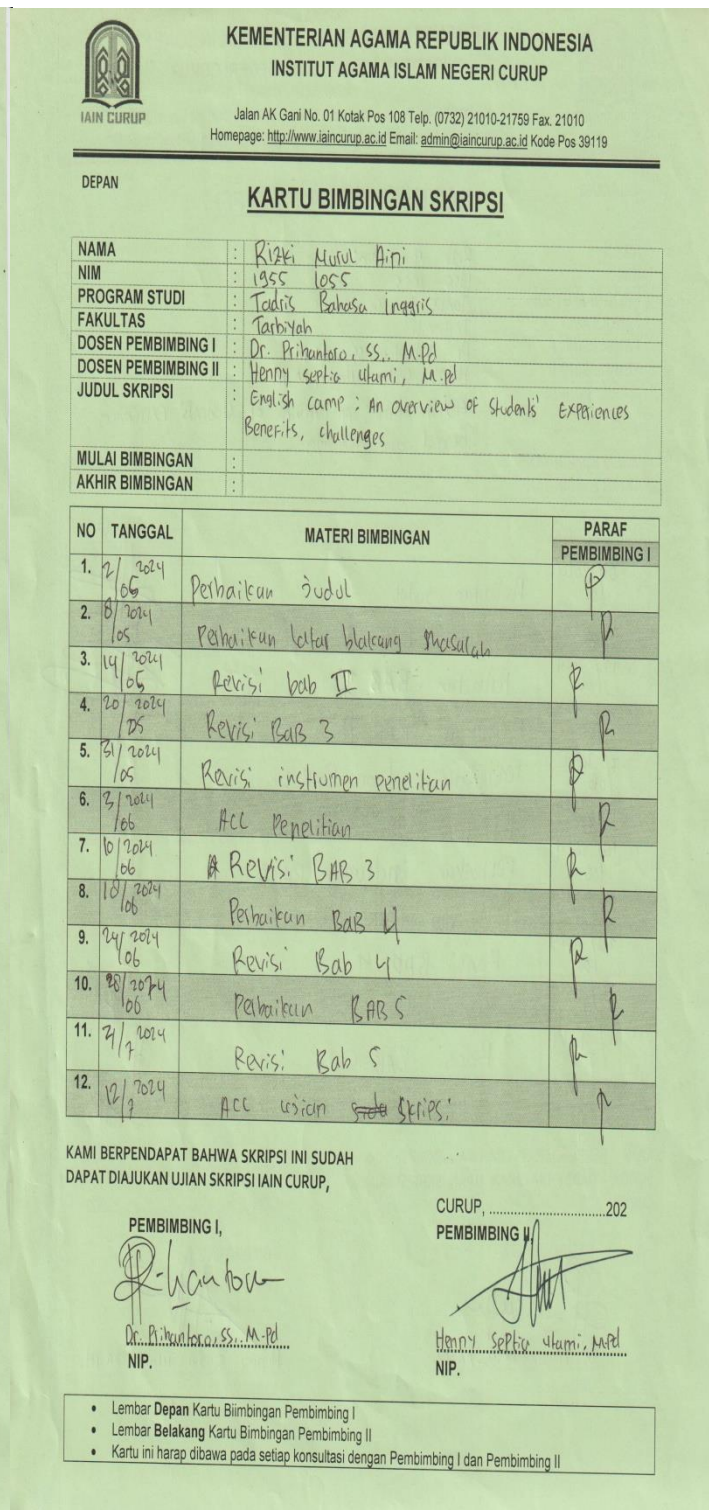 KEMENTERIAN AGAMA REPUBLIK INDONESIA
INSTITUT AGAMA ISLAM NEGERI CURUP
IAIN CURUP
Jalan AK Gani No. 01 Kotak Pos 108 Telp. (0732) 21010-21759 Fax. 21010
Homepage: http://www.iaincurup.ac.id Email: admin@iaincurup.ac.id Kode Pos 39119
DEPAN
KARTU BIMBINGAN SKRIPSI
NAMA : Rizki Nurul Aini
NIM : 1955 1055
PROGRAM STUDI : Tadris Bahasa Inggris
FAKULTAS : Tarbiyah
DOSEN PEMBIMBING I : Dr. Prihantoro, SS., M.Pd
DOSEN PEMBIMBING II : Henny Septia Utami, M.Pd
JUDUL SKRIPSI : English camp : An overview of Students' Experiences
Benefits, challenges
MULAI BIMBINGAN :
AKHIR BIMBINGAN :
NO TANGGAL MATERI BIMBINGAN PARAF
PEMBIMBING I
1. 2/05 2024 Perbaikan Judul
2. 8/05 2024 Perbaikan latar blakang Masalah
3. 14/05 2024 Revisi bab II
4. 20/05 2024 Revisi BaB 3
5. 31/05 2024 Revisi instrumen penelitian
6. 3/06 2024 ACC Penelitian
7. 10/06 2024 Revisi BAB 3
8. 18/06 2024 Perbaikan BaB 4
9. 24/06 2024 Revisi Bab 4
10. 28/06 2024 Perbaikan BAB 5
11. /7 2024 Revisi Bab 5
12. 12/7 2024 ACC ujian Skripsi
KAMI BERPENDAPAT BAHWA SKRIPSI INI SUDAH
DAPAT DIAJUKAN UJIAN SKRIPSI IAIN CURUP,
CURUP, ................................202
PEMBIMBING I,
PEMBIMBING II,
Dr. Prihantoro, SS., M.Pd
Henny Septia Utami, M.Pd
NIP.
NIP.
• Lembar Depan Kartu Biimbingan Pembimbing I
• Lembar Belakang Kartu Bimbingan Pembimbing II
• Kartu ini harap dibawa pada setiap konsultasi dengan Pembimbing I dan Pembimbing II